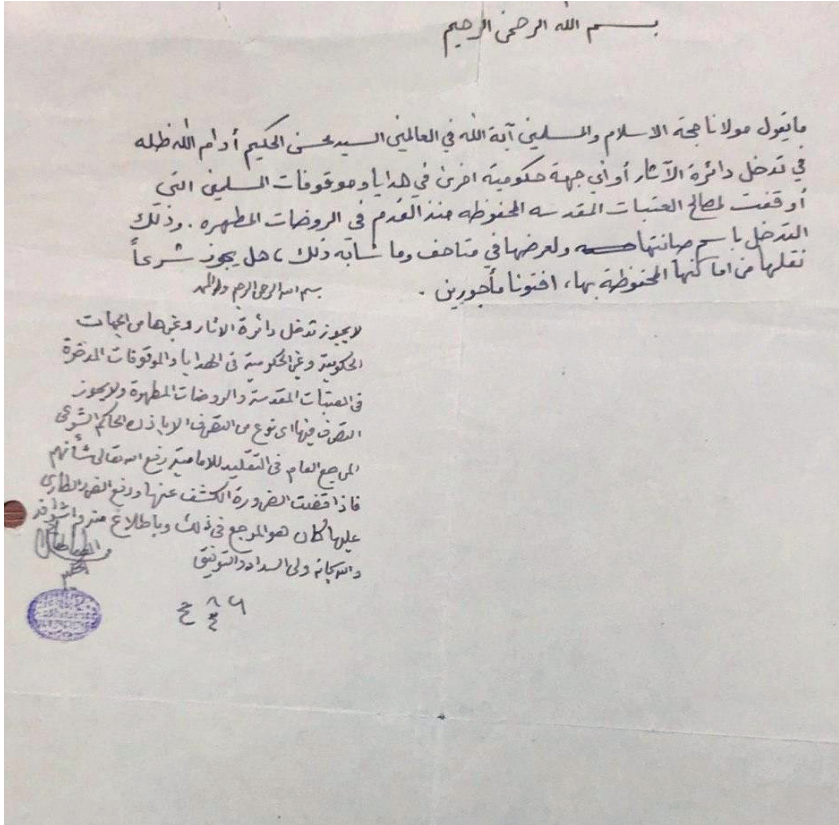 بسم الله الرحمن الرحيم
ما يقول مولانا حجة الاسلام والمسلمين آية الله في العالمين السيد محسن الحكيم أدام الله ظله
في تدخل دائرة الآثار أو اي جهة حكومية اخرى في هدايا وموقوفات المسلمين التي
أوقفت لمصالح العتبات المقدسه المحفوظه منذ القدم في الروضات المطهره . وذلك
التدخل باسم صيانتها ولعرضها في متاحف وما شابه ذلك ، هل يجوز شرعاً
نقلها من اماكنها المحفوظة بها ، افتونا مأجورين .
بسم الله الرحمن الرحيم وله الحمد
لا يجوز تدخل دائرة الاثار وغيرها من الجهات
الحكومية وغير الحكومية في الهدايا والموقوفات المدخرة
في العتبات المقدسة والروضات المطهرة ولا يجوز
التصرف فيها اي نوع من التصرف الا باذن الحاكم الشرعي
المرجع العام في التقليد للامامية رفع الله تعالى شأنهم
فاذا اقتضت الضرورة الكشف عنها ودفع الضرر الطارئ
عليها كان هو المرجع في ذلك وباطلاع منه واشراف
والله سبحانه ولي السداد والتوفيق
الطباطبائي
الحكيم